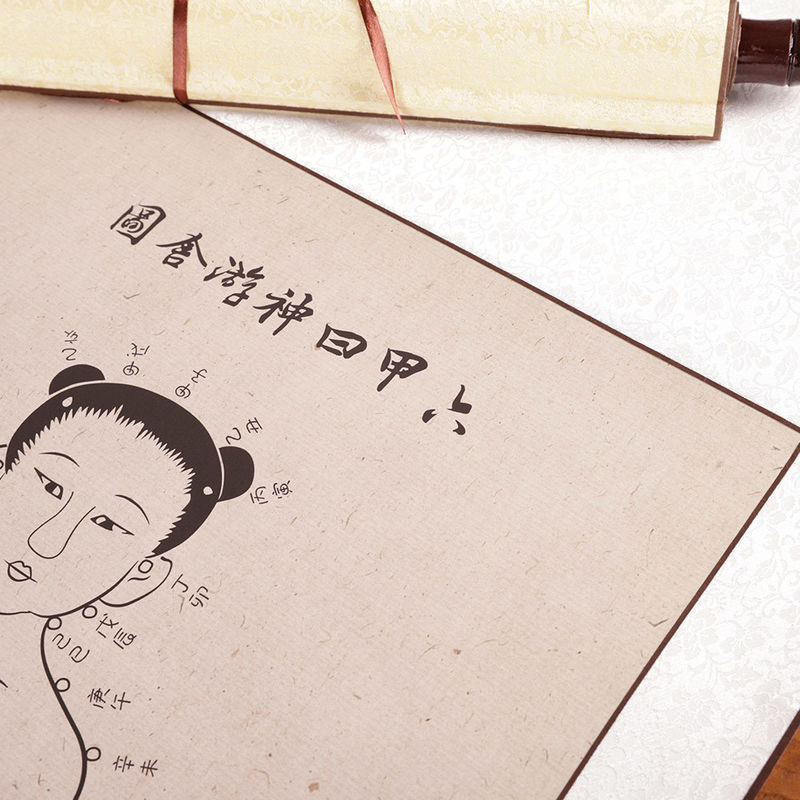 六甲日神游舍圖
乙亥
甲戌
甲子
乙丑
丙寅
丁卯
戊辰
己巳
庚午
辛未